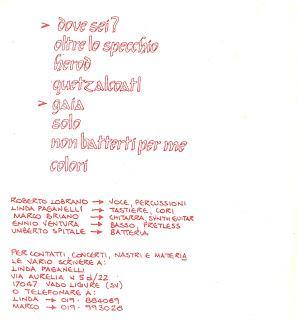 > dove sei?
oltre lo specchio
herod
quetzalcoatl
> gaia
solo
non batterti per me
colori
ROBERTO LOBRANO → VOCE, PERCUSSIONI
LINDA PAGANELLI → TASTIERE, CORI
MARCO BRIANO → CHITARRA, SYNTH GUITAR
ENNIO VENTURA → BASSO, FRETLESS
UMBERTO SPITALE → BATTERIA
PER CONTATTI, CONCERTI, NASTRI E MATERIA
LE VARIO SCRIVERE A:
LINDA PAGANELLI
VIA AURELIA N 5 d/22
17047 VADO LIGURE (SV)
O TELEFONARE A:
LINDA → 019 - 884089
MARCO → 019 - 993028